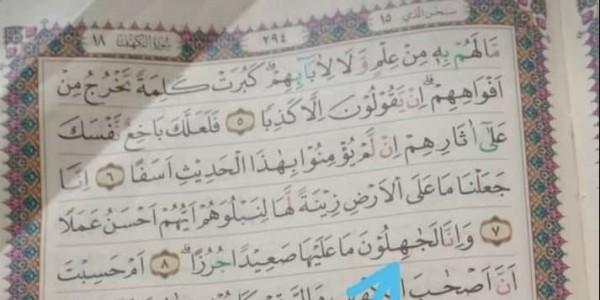 سبحن الذي ١٥
٢٩٤
سورة الكهف ١٨
مَا لَهُمْ بِهٖ مِنْ عِلْمٍ وَّلَا لِاٰبَآئِهِمْۗ كَبُرَتْ كَلِمَةً تَخْرُجُ مِنْ
اَفْوَاهِهِمْۗ اِنْ يَّقُوْلُوْنَ اِلَّا كَذِبًا ٥ فَلَعَلَّكَ بَاخِعٌ نَّفْسَكَ
عَلٰٓى اٰثَارِهِمْ اِنْ لَّمْ يُؤْمِنُوْا بِهٰذَا الْحَدِيْثِ اَسَفًا ٦ اِنَّا
جَعَلْنَا مَا عَلَى الْاَرْضِ زِيْنَةً لَّهَا لِنَبْلُوَهُمْ اَيُّهُمْ اَحْسَنُ عَمَلًا
٧ وَاِنَّا لَجٰهِلُوْنَ مَا عَلَيْهَا صَعِيْدًا جُرُزًاۗ ٨ اَمْ حَسِبْتَ
اَنَّ اَصْحٰبَ